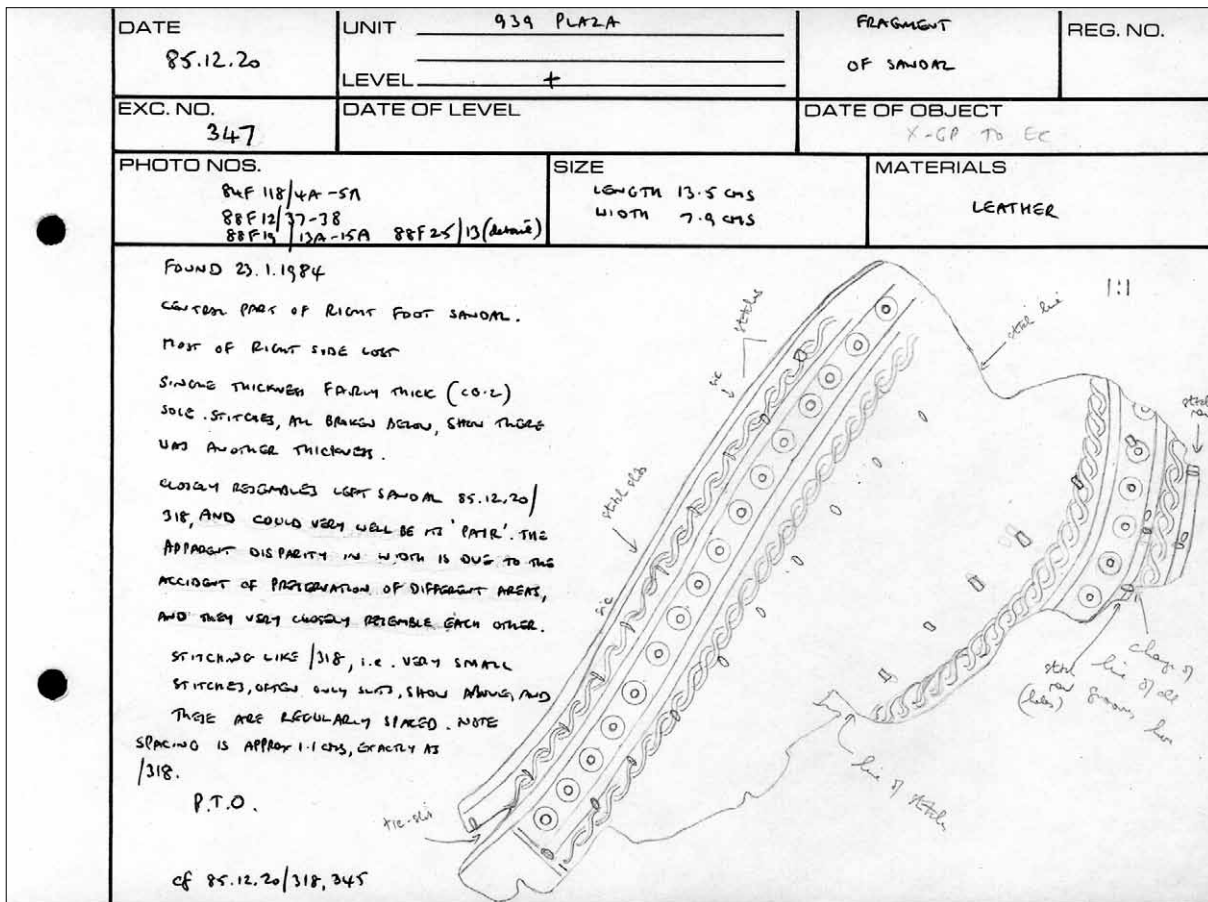 DATE
85.12.20
UNIT 939 PLAZA
LEVEL +
FRAGMENT
OF SANDAL
REG. NO.
EXC. NO.
347
DATE OF LEVEL
DATE OF OBJECT
X-GP TO EC
PHOTO NOS.
84F 118/4A-5A
88F 12/37-38
88F19/13A-15A 88F25/13 (detail)
SIZE
LENGTH 13.5 CMS
WIDTH 7.9 CMS
MATERIALS
LEATHER
FOUND 23.1.1984
CENTRAL PART OF RIGHT FOOT SANDAL.
MOST OF RIGHT SIDE LOST
SINGLE THICKNESS FAIRLY THICK (C0.2)
SOLE. STITCHES, ALL BROKEN BELOW, SHOW THERE
WAS ANOTHER THICKNESS.
CLOSELY RESEMBLES LEFT SANDAL 85.12.20/
318, AND COULD VERY WELL BE ITS 'PAIR'. THE
APPARENT DISPARITY IN WIDTH IS DUE TO THE
ACCIDENT OF PRESERVATION OF DIFFERENT AREAS,
AND THEY VERY CLOSELY RESEMBLE EACH OTHER.
STITCHING LIKE /318, i.e. VERY SMALL
STITCHES, OFTEN ONLY SLITS, SHOW ABOVE, AND
THESE ARE REGULARLY SPACED. NOTE
SPACING IS APPROX 1.1 CMS, EXACTLY AS
/318.
P.T.O.
cf 85.12.20/318, 345
1:1
stitches
sic
stitch line
stitch slits
sic
stitch
row
tie-slit
line of stitches
stitch
row
(holes)
change of
line of all
grooves
here